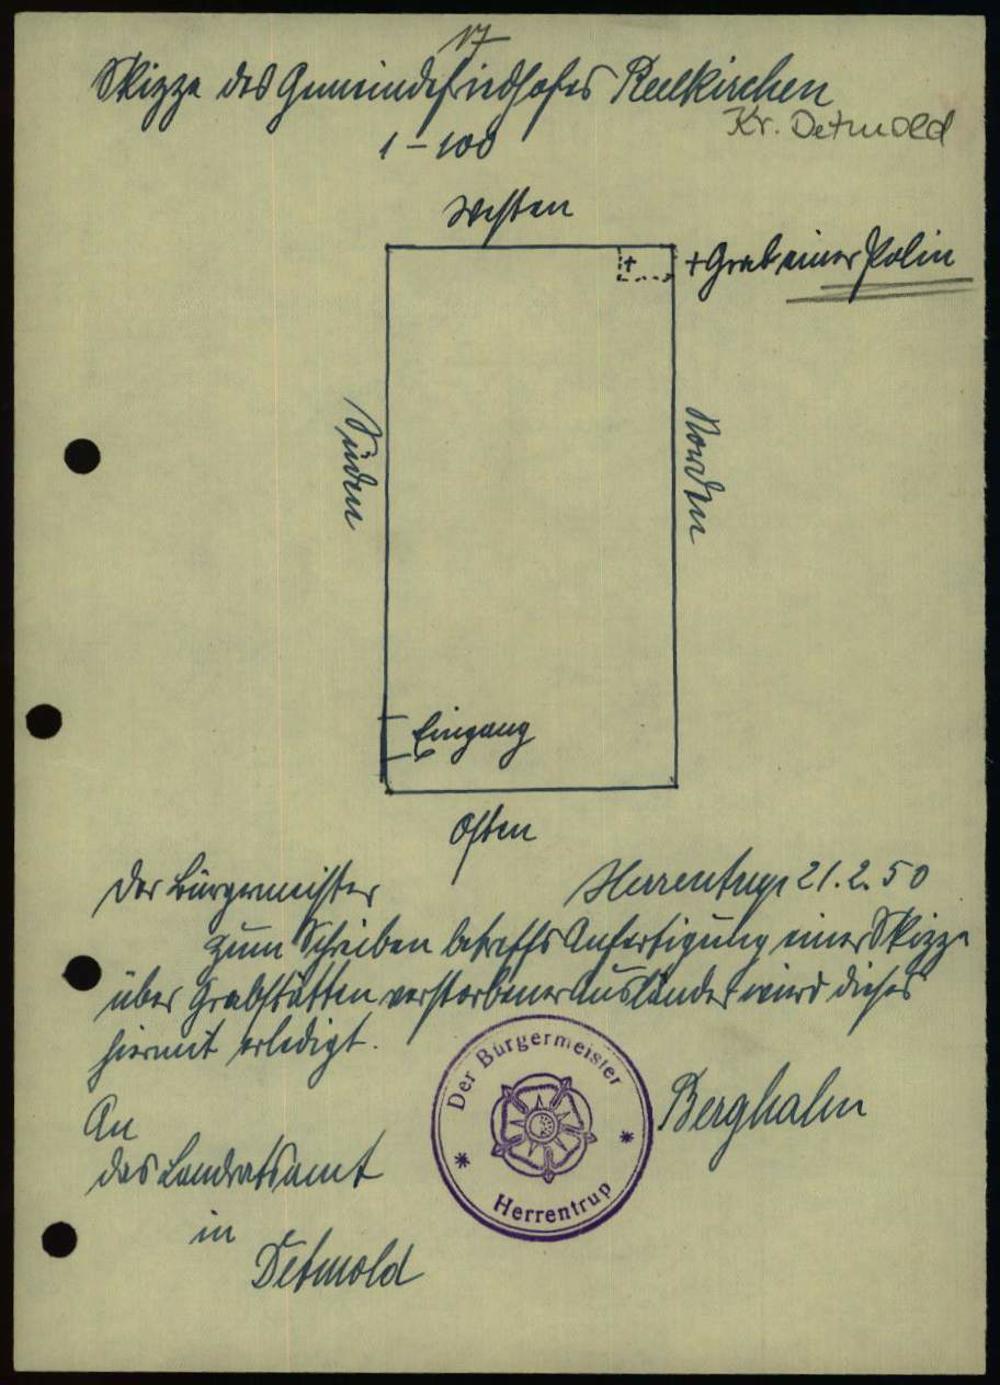 17
Skizze des Gemeindefriedhofes Reelkirchen
Kr. Detmold
1 – 100
Westen
+
+ Grab einer Polin
Süden
Norden
Eingang
Osten
Der Bürgermeister
Herrentrup 21.2.50
Zum Schreiben betreffs Anfertigung einer Skizze
über Grabstätten verstorbener Ausländer wird dieses
hiermit erledigt.
Der Bürgermeister
* *
Herrentrup
Berghahn
An
das Landratsamt
in
Detmold